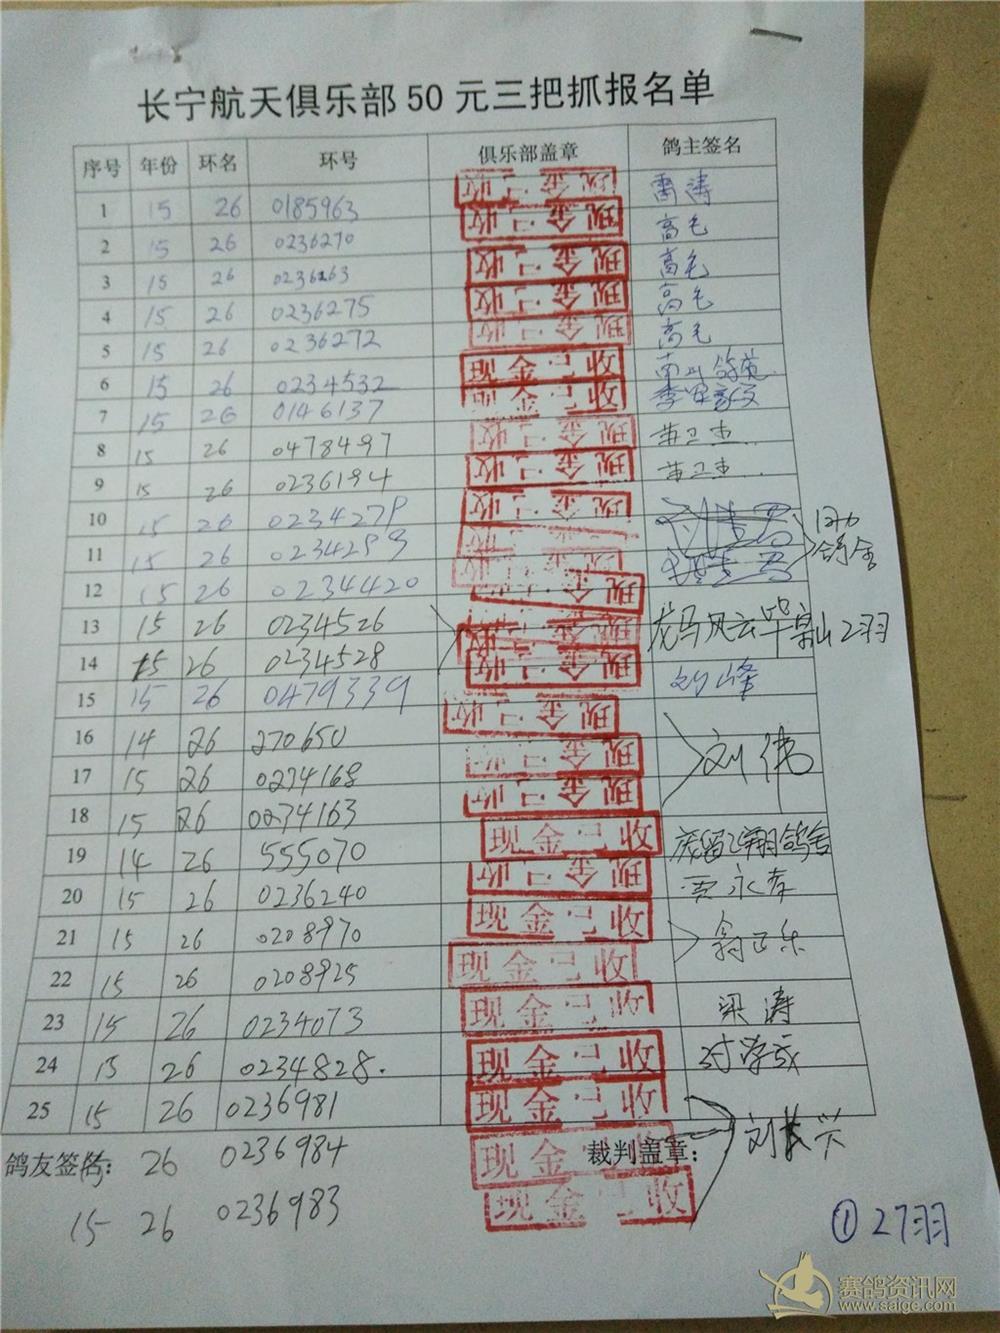 长宁航天俱乐部50元三把抓报名单
序号 年份 环名 环号 俱乐部盖章 鸽主签名
1 15 26 0185963 现金已收 雷涛
2 15 26 0236270 现金已收 高毛
3 15 26 0236263 现金已收 高毛
4 15 26 0236275 现金已收 高毛
5 15 26 0236272 现金已收 高毛
6 15 26 0234532 现金已收
7 15 26 0146137 现金已收
8 15 26 0478497 现金已收 黄卫杰
9 15 26 0236194 现金已收 黄卫杰
10 15 26 0234279 现金已收
11 15 26 0234289 现金已收
12 15 26 0234420 现金已收
13 15 26 0234526 现金已收 龙马风云 2羽
14 15 26 0234528 现金已收
15 15 26 0479339 现金已收 刘峰
16 14 26 270650 现金已收
17 15 26 0234168 现金已收 刘伟
18 15 26 0234163 现金已收
19 14 26 555070 现金已收
20 15 26 0236240 现金已收 贾永存
21 15 26 0208970 现金已收
22 15 26 0208925 现金已收
23 15 26 0234073 现金已收 梁涛
24 15 26 0234828 现金已收
25 15 26 0236981 现金已收 刘振兴
鸽友签名: 15 26 0236984 现金已收 裁判盖章:
15 26 0236983 现金已收
① 27羽
赛鸽资讯网
www.saige.com